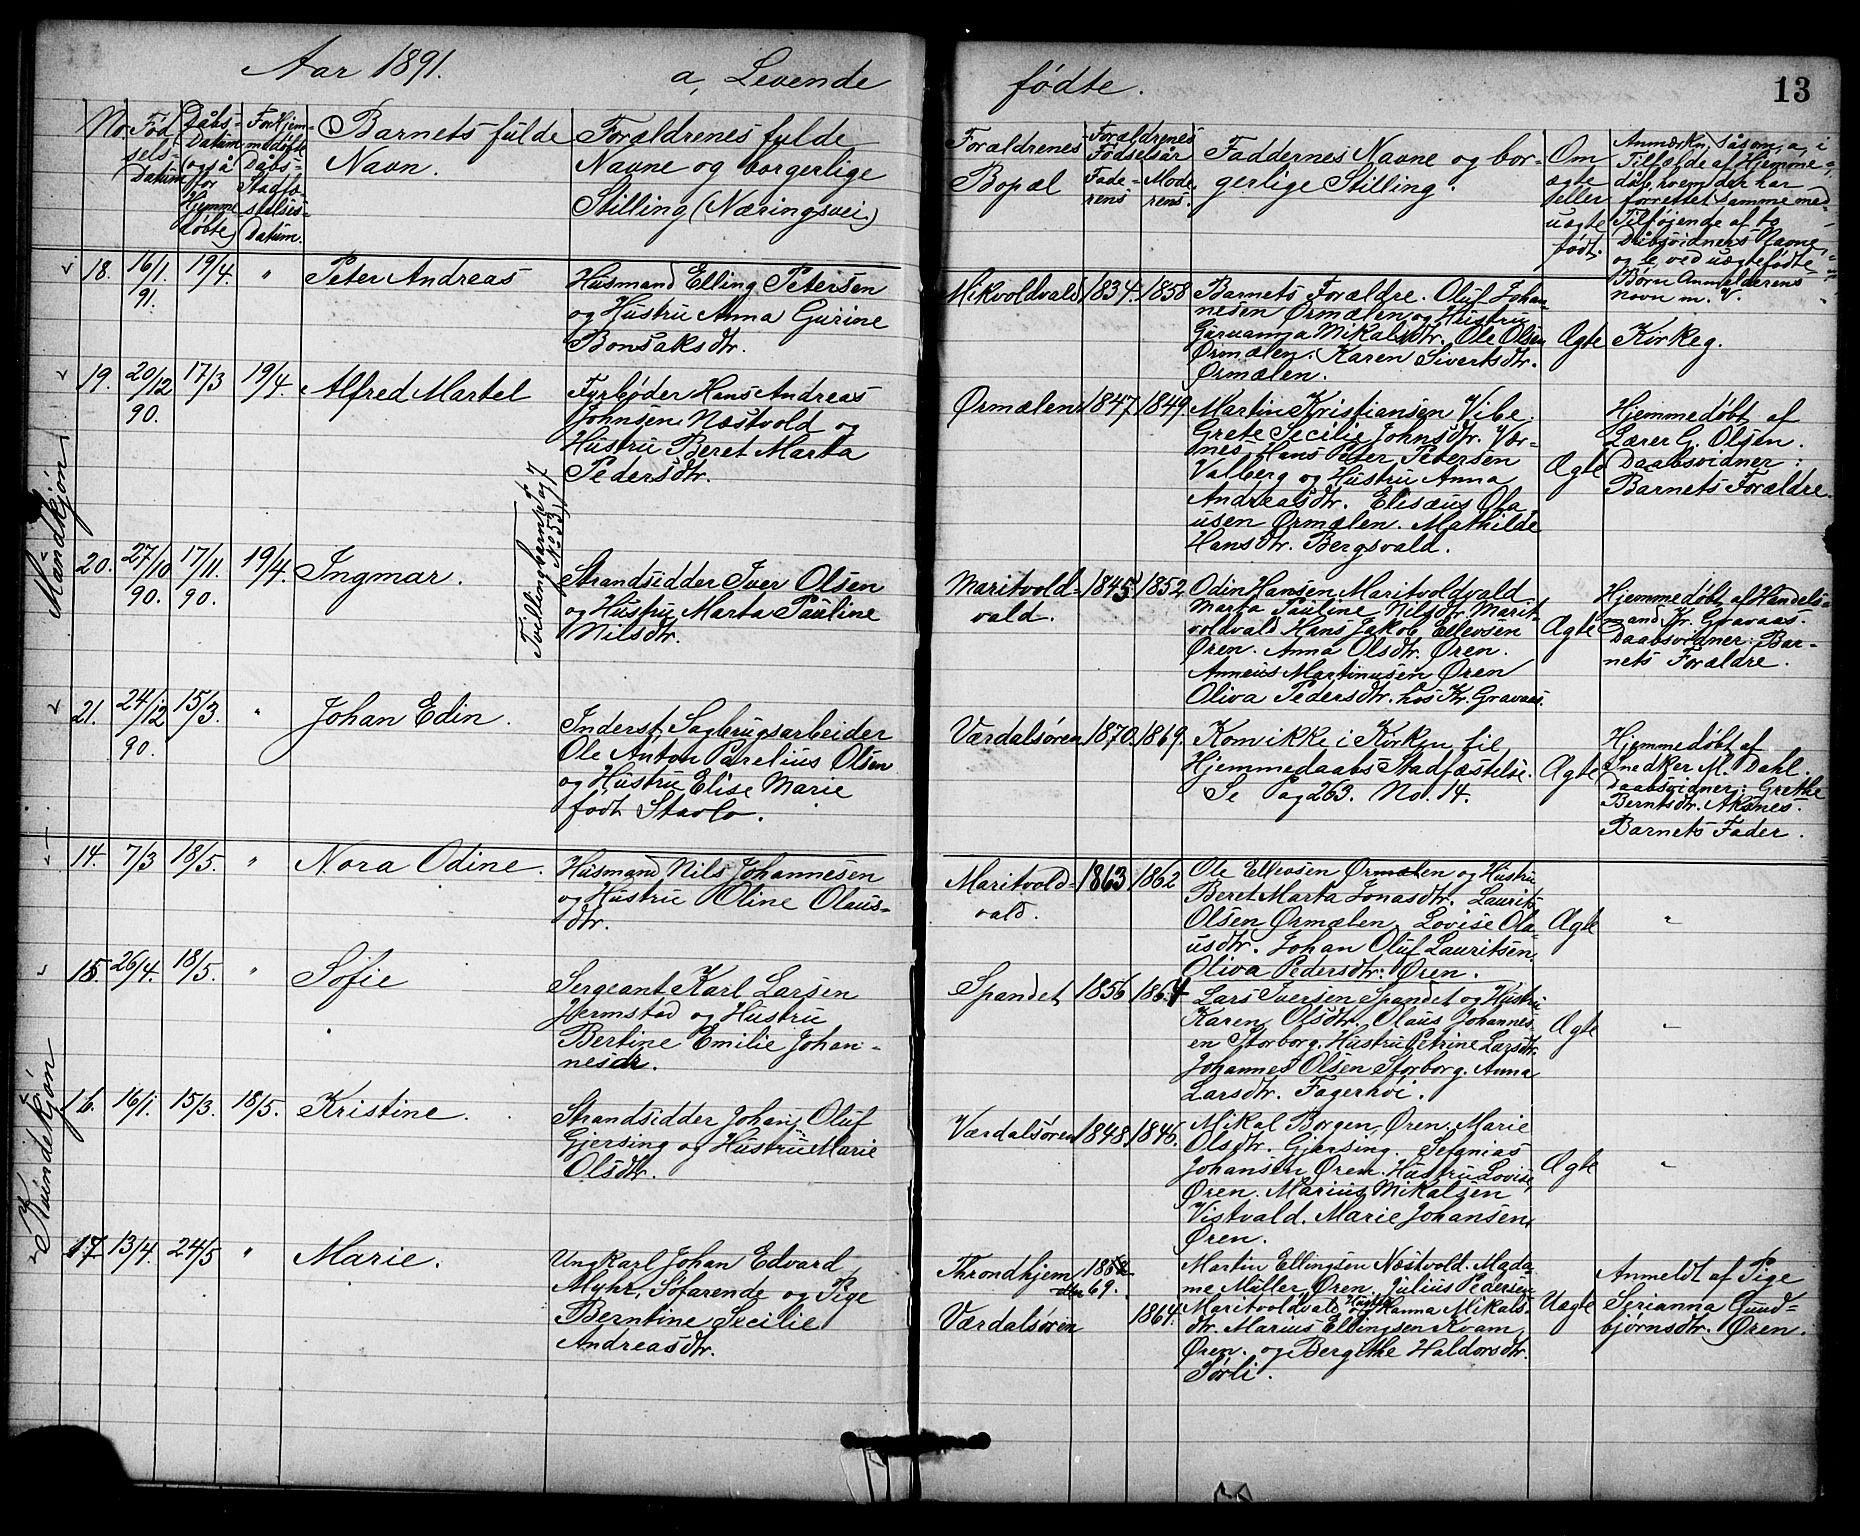 Aar 1891. a, Levende fødte. 13
No. Fød sels- Datum
Dåbs- Datum (også for Hjemme døbte)
For Hjem- medøbte Dåbs- Stadfæ- stelses- Datum.
Barnets fulde Navn.
Forældrenes fulde Navne og borgerlige Stilling (Næringsvei)
Forældrenes Bopæl
Forældrenes Fødselsår Fade- rens Mode- rens.
Faddernes Navne og bor- gerlige Stilling.
Om ægte eller uægte født.
Anmærkn. Såsom, a, i
Tilfælde af Hjemme-
dåb, hvem der har
forrettet samme med
Tilføjende af to
Dåbsvidners Navne,
og b, ved uægtefødte
Børn Anmelderens
navn m. V.
Mandkjøn
18. 16/1 91. 19/4. " Peter Andreas
Husmand Elling Petersen
og Hustru Anna Gurine
Bonsaksdtr.
Mikvoldvald 1834. 1858
Barnets Forældre. Oluf Johan-
nesen Ørmælen og Hustru
Mikalsdtr. Ole Olsen
Ørmælen. Karen Sivertsdtr.
Ørmælen.
Ægte Kirkeg.
19. 20/12 90. 17/3 19/4. Alfred Martel
Fyrbøder Hans Andreas
Johnsen Næstvold og
Hustru Beret Marta
Pedersdtr.
Ørmælen 1847 1849
Martin Kristiansen Vibe.
Grete Secilie Johnsdtr. Vær-
nes. Hans Peter Petersen
Valberg og Hustru Anna
Andreasdtr. Elisæus Ola
usen Ørmælen. Mathilde
Hansdtr. Bergsvald.
Ægte
Hjemmedøbt af
Lærer G. Olsen.
Daabsvidner:
Barnets Forældre.
20. 27/10 90. 17/11. 90. 19/4. Ingmar.
Tvillingbarn se Pag 7
No 53
Strandsidder Iver Olsen
og Hustru Marta Pauline
Nilsdtr.
Maritvold-
vald. 1845 1852
Odin Hansen Maritvoldvald
Marta Pauline Nilsdtr. Marit-
voldvald Hans Jakob Ellevsen
Øren. Anna Olsdtr. Øren.
Anneus Martinusen Øren
Oliva Pedersdtr. hos Kr. Gravaas.
Ægte
Hjemmedøbt af Handels-
mand Kr. Gravaas.
Daabsvidner: Bar-
nets Forældre.
21. 24/12 90. 15/3. " Johan Edin.
Inderst, Sagbrugsarbeider
Ole Anton Parelius Olsen
og Hustru Elise Marie
født Stavlo.
Værdalsøren 1870. 1869.
Kom ikke i Kirken til
Hjemmedaabs Stadfæstelse.
Se Pag 263. No. 14.
Ægte
Hjemmedøbt af
Snedker M. Dahl.
Daabsvidner: Grethe
Berntsdtr. Aksnes.
Barnets Fader.
Kvindekjøn
14. 7/3 18/5. " Nora Odine.
Husmand Nils Johannesen
og Hustru Oline Olaus-
dtr.
Maritvold-
vald. 1863 1862
Ole Ellevsen Ørmælen og Hustru
Beret Marta Jonasdtr. Laurits
Olsen Ørmælen. Lovise Ola-
usdtr. Johan Oluf Lauritsen.
Oliva Pedersdtr. Øren.
Ægte "
15. 26/4. 18/5. " Sofie
Sergeant Karl Larsen
Hermstad og Hustru
Bertine Emilie Johan-
nesdr.
Spandet 1856 1864
Lars Iversen Spandet og Hustru
Karen Olsdtr. Olaus Johannes-
en Storborg. Hustru Petrine Larsdtr.
Johannes Olsen Storborg. Anna
Larsdtr. Fagerhøi.
Ægte "
16. 16/1. 15/3. 18/5. Kristine.
Strandsidder Johan Oluf
Gjersing og Hustru Marie
Olsdtr.
Værdalsøren 1848 1846.
Mikal Borgen, Øren. Marie
Olsdtr. Gjersing. Sefanias
Johansen Øren. Hustru Lovise,
Øren. Marius Mikalsen
Vistvald. Marie Johansen,
Øren.
Ægte "
17 13/4. 24/5 " Marie.
Ungkarl Johan Edvard
Myhr, Søfarende og Pige
Berntine Secilie
Andreasdtr.
Throndhjem eller 69.
Værdalsøren 1864.
Martin Ellingsen Næstvold. Mada-
me Müller, Øren. Julius Pedersen
Maritvoldvald og Hustru Hanna Mikals-
dtr. Marius Ellingsen Kvam,
Øren. og Bergithe Haldorsdtr.
Sørli.
Uægte
Anmeldt af Pige
Serianna Gund-
bjørnsdtr. Øren.